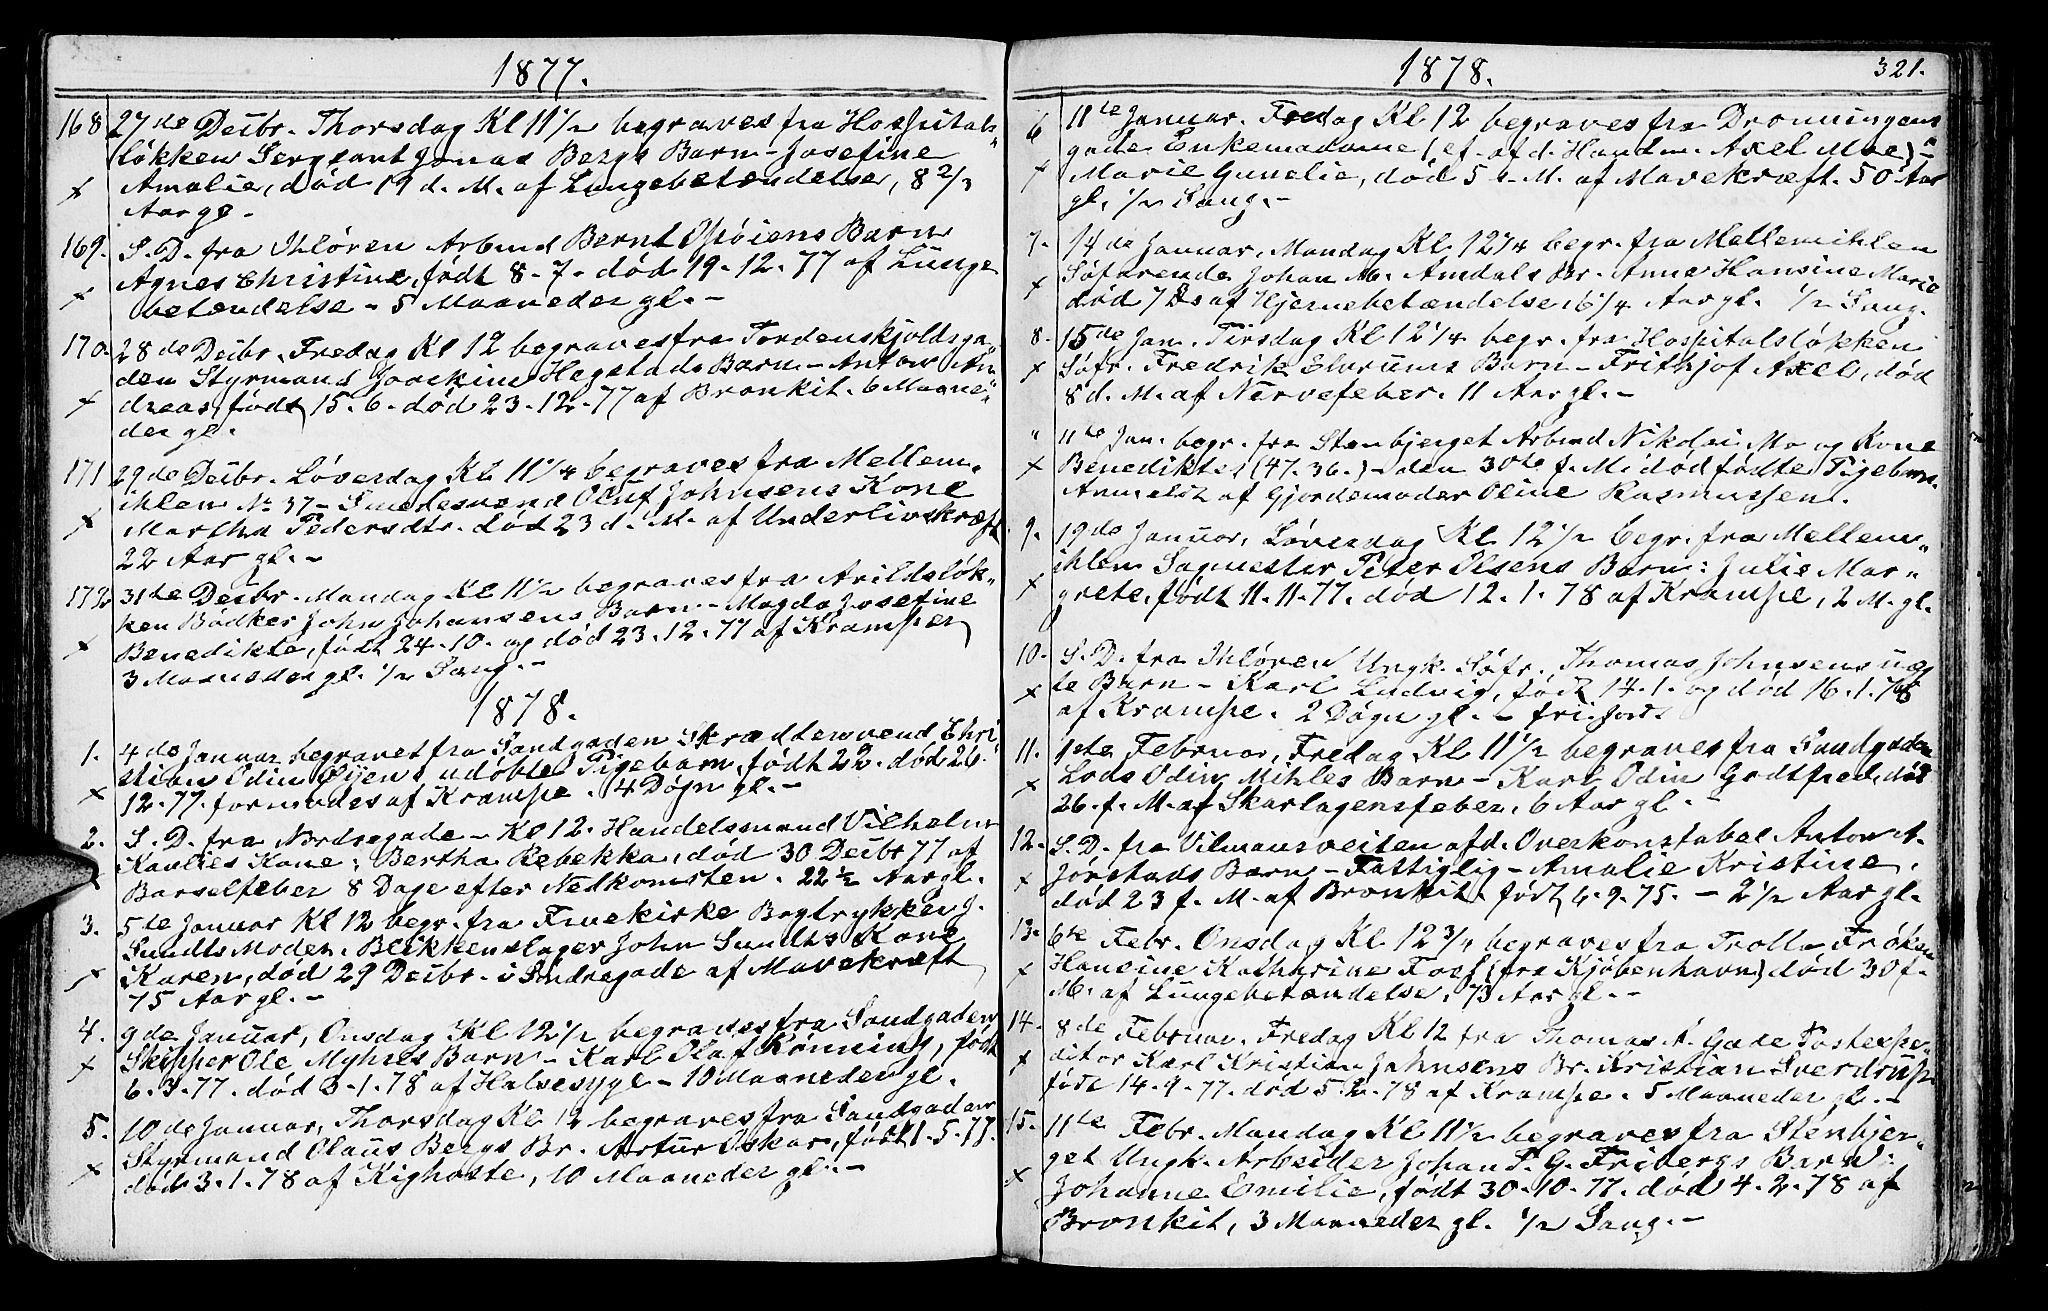 1877.
168 27de Decbr. Thorsdag Kl 11½ begraves fra Hospitals-
løkken Sergeant Jonas Bergs Barn - Josefine
x Amalie, død 19 d. M. af Lungebetændelse, 8 2/3
Aar gl. -
169. S. D. fra Ihlören Arbmd Bernt Barn
x Agnes Christine, født 8-7- død 19-12-77 af Lunge
betændelse - 5 Maaneder gl. -
170. 28de Decbr. Fredag Kl 12 begraves fra Tordenskjoldsga-
den Styrmand Joackim Hegstads Barn - Anton An
x dreas, født 15-6- død 23-12-77 af Bronkit. 6 Maane-
der gl.
171 29de Decbr. Løverdag Kl 11¼ begraves fra Mellem-
ihlen No 37 - Smedesvend Oluf Johnsens Kone
x Martha Pedersdtr. død 23 d. M. af Underlivskræft
22 Aar gl. -
172 31te Decbr. Mandag Kl 11½ begraves fra Arildsløk-
ken Bødker John Johansens Barn - Magda Josefine
x Benedikte, født 24-10- og død 23-12-77 af Kramper
3 Maaneder gl. ½ Sang. -
1878.
1. 4de Januar begravet fra Sandgaden Skræddersvend Chri
stian Odin udøbte Pigebarn, født 22- død 26-
x 12-77. formodes af Krampe. 4 Døgn gl. -
2. S. D. fra Nordregade - Kl 12. Handelsmand Vilhelm
Kone: Bertha Rebekka, død 30 Decbr 77 af
x Barselfeber 8 Dage efter Nedkomsten. 22½ Aar gl.
3. 5te Januar Kl 12 begr. fra Fruekirke Bogtrykker J.
Sundts Moder, Blikkenslager John Sundts Kone
x Karen, død 29 Decbr. i Søndregade af Mavekræft
75 Aar gl. -
4. 9de Januar, Onsdag Kl 12½ begraves fra Sandgaden
x Skipper Ole Myhres Barn - Karl Olaf Rönning, født
6-3-77. død 3-1-78 af Halsesyge - 10 Maaneder gl.
5. 10de Januar, Thorsdag Kl 12 begraves fra Sandgaden
Styrmand Olaus Bergs Br. Artur Oskar, født 1-5-77.
x død 3-1-78 af Kighoste, 10 Maaneder gl. -
1878.
321.
6 11te Januar, Fredag Kl 12 begraves fra Dronningens-
gade Enkemadame (ef. afd. Handm. Axel Moe) -
x Marie Gunelie, død 5 d. M. af Mavekræft. 50 Aar
gl. ½ Sang. -
7. 14de Januar, Mandag Kl 12¼ begr. fra Mellemihlen
x Søfarende Johan M. Amdals Br. Anna Hansine Marie
død 7 Ds af Hjernebetændelse, 6¼ Aar gl. ½ Sang.
8. 15de Jan. Tirsdag Kl 12¼ begr. fra Hospitalsløkken
x Søfr. Fredrik Elvrums Barn - Frithjof Axel, død
8 d. M. af Nervefeber. 11 Aar gl. -
" 11te Jan. begr. fra Stenbjerget Arbmd Nikolai Mo og Kone
x Benedikte (47.36.) - den 30te f. M. dødfødte Pigebarn.
Anmeldt af Gjordemoder Oline Rasmussen.
9. 19de Januar, Løverdag Kl 12½ begr. fra Mellem-
ihlen Sagmester Peter Olsens Barn: Julie Mar-
x grete, født 11-11-77. død 12-1-78 af Krampe, 2 M. gl.
10. S. D. fra Ihlören Ungk. Søfr. Thomas Johnsens uæg
x te Barn - Karl Ludvig, født 14-1- og død 16-1-78
af Krampe. 2 Døgn gl. - fri Jord.
11. 1ste Februar, Fredag Kl 11½ begraves fra Sandgaden
x Lods Odin Mihles Barn - Karl Odin Godtfred, død
26. f. M. af Skarlagensfeber, 6 Aar gl. -
12. S. D. fra Vilmansveiten afd. Overkonstabel Anton A.
x Jørstads Barn - Fattiglig - Amalie Kristine,
død 23 f. M. af Bronkit, født 4-9-75. - 2½ Aar gl.
13. 6te Febr. Onsdag Kl 12¾ begraves fra Trolla Frøken
x Hansine Kathrine (fra Kjöbenhavn) død 30 f.
M. af Lungebetændelse, 73 Aar gl. -
14. 8de Februar, Fredag Kl 12 fra Thomas A. Gade Postexpe-
x ditør Karl Kristian Johnsens Br. Kristian Sverdrup
født 14-9-77. død 5-2-78 af Krampe. 5 Maaneder gl. -
15. 11te Febr. Mandag Kl 11½ begraves fra Stenbjer-
get Ungk. Arbeider Johan S. G. Fribergs Barn:
x Johanne Emilie, født 30-10-77. død 4-2-78 af
Bronkit, 3 Maaneder gl. ½ Sang. -